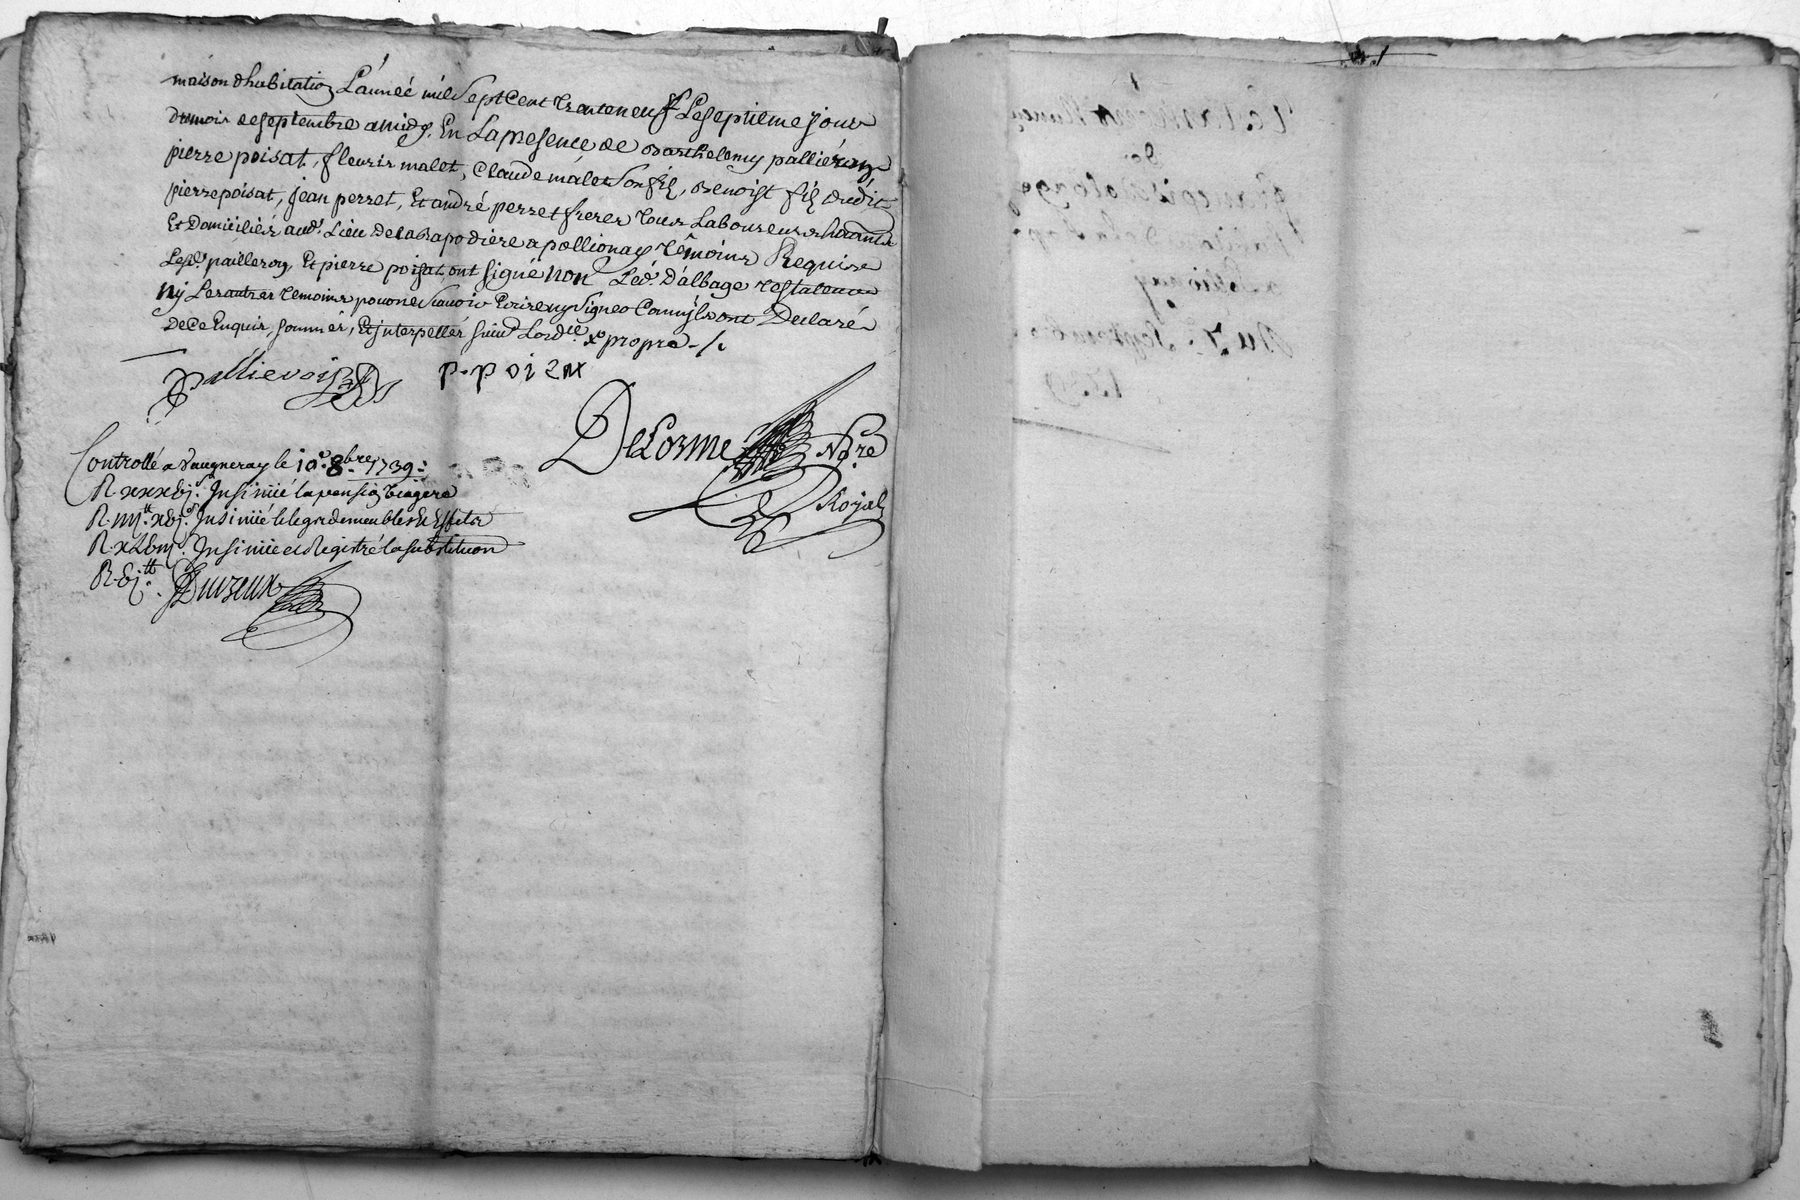 maison d'habitation L'année mil Sept Cent Trente neuf Le septieme jour
du mois de septembre a midy, En La presence de Barthelemy palliéron
pierre poisat, fleurir malet, Claude malet Son fil, Benoist fil dudit
pierre poisat, jean perret, Et andré perret freres Tous Laboureurs habitants
Et Domiciliés aud. Lieu de la Rapodiere a pollionay Témoins Requis
Lesd. pailleron, Et pierre poisat ont signé non Led. D'albage Testateur
Nÿ Les autres Temoins pour ne Scavoir Ecrire ny Signer Comm'ils ont Declaré
De Ce Enquis, sommés, Et jnterpellés suivt Lordce propre
Pallieron
p. poi zat
DeLorme Nore
Royal
Controllé a Vaugneray le 10e 8bre 1739
R xxxvj s. Insinüé la pension viagere
R. iiij tt xvj s. Insinüé le legs de meubles Et Effets
R. Insinüé et Registré la substituon
R. vj tt. Duvreux